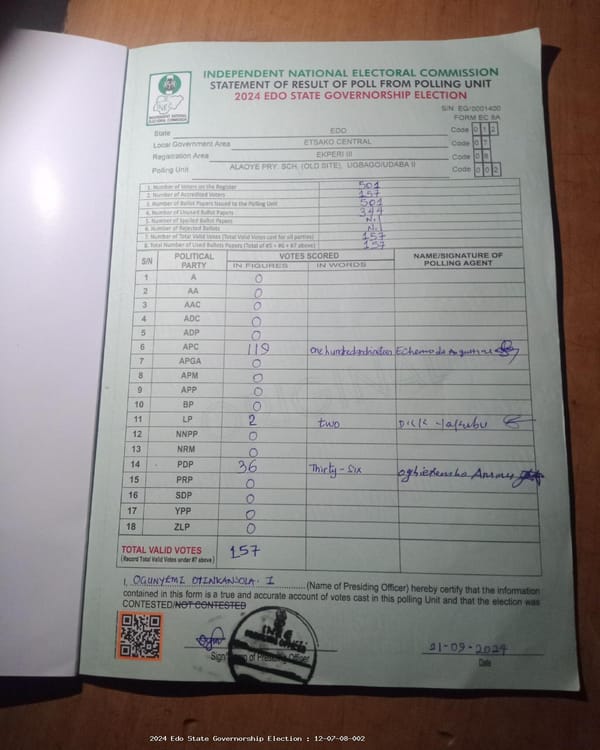 INDEPENDENT NATIONAL ELECTORAL COMMISSION
STATEMENT OF RESULT OF POLL FROM POLLING UNIT
2024 EDO STATE GOVERNORSHIP ELECTION
S/N: EG/0001400
FORM EC 8A
INEC
INDEPENDENT NATIONAL ELECTORAL COMMISSION
State EDO Code 0 1 2
Local Government Area ETSAKO CENTRAL Code 0 7
Registration Area EKPERI III Code 0 8
Polling Unit ALAOYE PRY. SCH. (OLD SITE), UGBAGO/UDABA II Code 0 0 2
1. Number of Voters on the Register 501
2. Number of Accredited Voters 157
3. Number of Ballot Papers Issued to the Polling Unit 501
4. Number of Unused Ballot Papers 344
5. Number of Spoiled Ballot Papers Nil
6. Number of Rejected Ballots Nil
7. Number of Total Valid Votes (Total Valid Votes cast for all parties) 157
8. Total Number of Used Ballots Papers (Total of #5 + #6 + #7 above) 157
S/N POLITICAL PARTY VOTES SCORED NAME/SIGNATURE OF POLLING AGENT
IN FIGURES IN WORDS
1 A 0
2 AA 0
3 AAC 0
4 ADC 0
5 ADP 0
6 APC 119 One hundred and nineteen
7 APGA 0
8 APM 0
9 APP 0
10 BP 0
11 LP 2 two
12 NNPP 0
13 NRM 0
14 PDP 36 Thirty-Six
15 PRP 0
16 SDP 0
17 YPP 0
18 ZLP 0
TOTAL VALID VOTES 157
(Record Total Valid Votes under #7 above)
I, OGUNYEMI OTINKANSOLA. I (Name of Presiding Officer) hereby certify that the information
contained in this form is a true and accurate account of votes cast in this polling Unit and that the election was
CONTESTED/NOT CONTESTED
Signature of Presiding Officer
21-09-2024
Date
2024 Edo State Governorship Election : 12-07-08-002